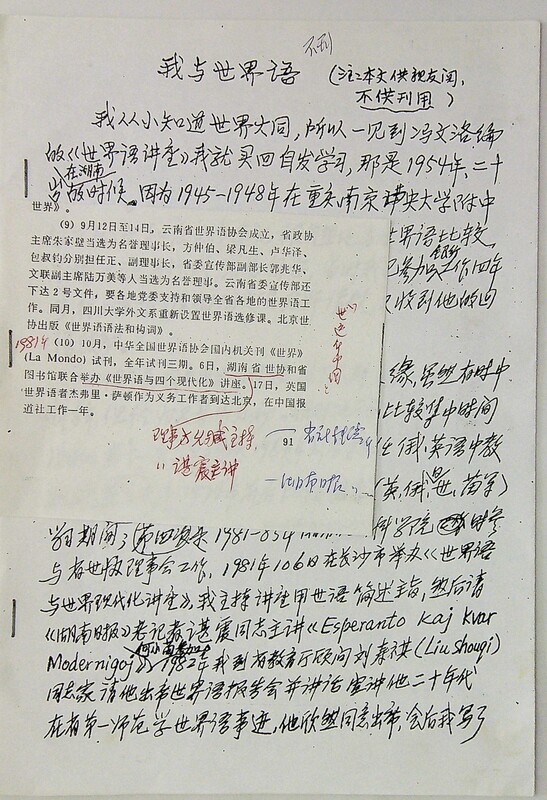 不刊
我与世界语
（注：本文供亲友阅，
不供刊用）
我从小知道世界大同，所以一见到冯文洛编
的《世界语讲座》我就买回自发学习，那是1954年、二十
在湖南
时候。因为1945—1948年在重庆、南京中央大学附中
世界》。
（9）9月12日至14日，云南省世界语协会成立，省政协
主席朱家璧当选为名誉理事长，方仲伯、梁凡生、卢华泽、
包叔钧分别担任正、副理事长，省委宣传部副部长郭兆华、
文联副主席陆万美等人当选为名誉理事。云南省委宣传部还
下达2号文件，要各地党委支持和领导全省各地的世界语工
作。同月，四川大学外文系重新设置世界语选修课。北京世
协出版《世界语语法和构词》。
1981年
（10）10月，中华全国世界语协会国内机关刊《世界》
(La Mondo) 试刊，全年试刊三期。6日，湖南省世协和省
图书馆联合举办《世界语与四个现代化》讲座。17日，英国
世界语者杰弗里·萨顿作为义务工作者到达北京，在中国报
道社工作一年。
91
主持，
谌震主讲
—湖南日报
世界语比较
参加工作四年
收到他的
缘，虽然有时中
比较集中时间
任俄、英语中教
（英、俄、世、苗等）
学习期间
1981—83年
科学院
与省世协理事会工作，1981年10.6日在长沙市举办《世界语
与世界现代化讲座》，我主持讲座用世语简述主旨，然后请
《湖南日报》老记者谌震同志主讲《Esperanto kaj kvar
Modernigoj》，1982年我到省教育厅顾问刘寿祺（Liu Shouqi）
同志家请他出席世界语报告会并讲话宣讲他二十年代
在省第一师范学世界语事迹，他欣然同意出席，会后我写了